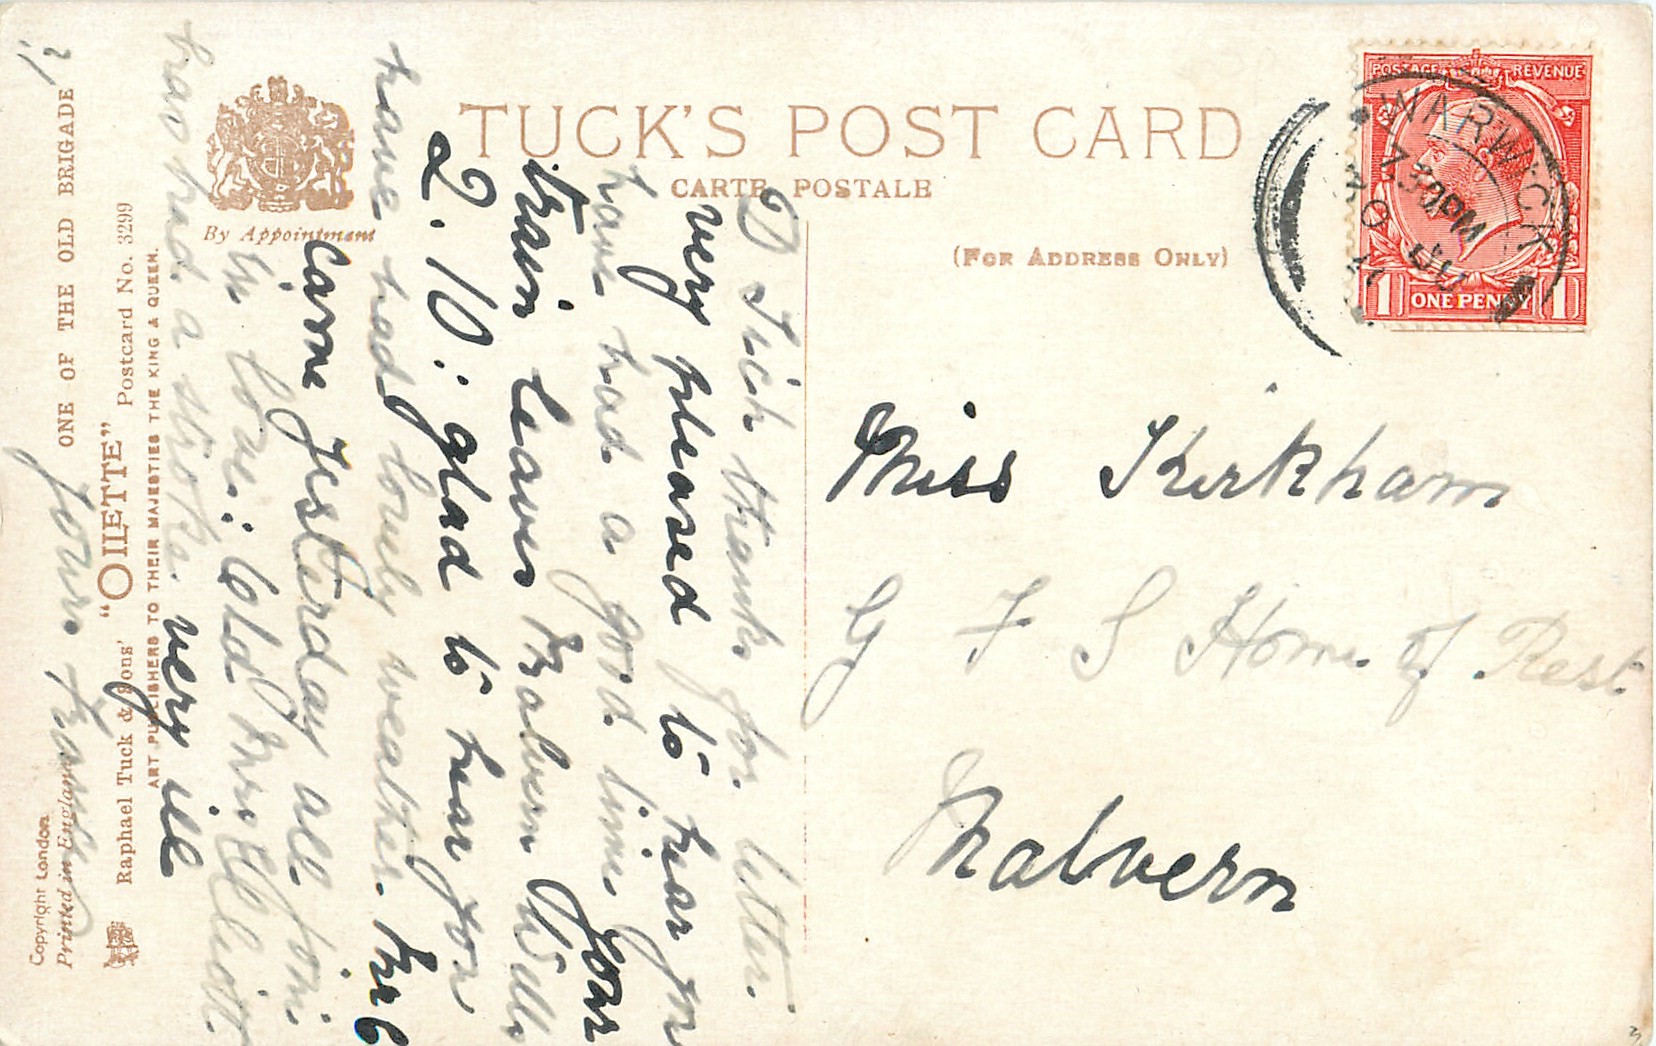 TUCK'S POST CARD
CARTE POSTALE
By Appointment
(FOR ADDRESS ONLY)
POSTAGE REVENUE
ONE PENNY
1 1
WARWICK
7 30 PM
Miss Kirkham
G F S Home of Rest
Malvern
D thanks for letter.
very pleased to hear you
have had a good time your
train leaves Malvern Wells
2.10: glad to hear you
have had lovely weather. Mrs C
came yesterday all join
in love: Old Mrs Elliott
has had a stroke. very ill
Yours
ONE OF THE OLD BRIGADE
"OILETTE" Postcard No. 3299
Raphael Tuck & Sons'
ART PUBLISHERS TO THEIR MAJESTIES THE KING & QUEEN.
Copyright London
Printed in England